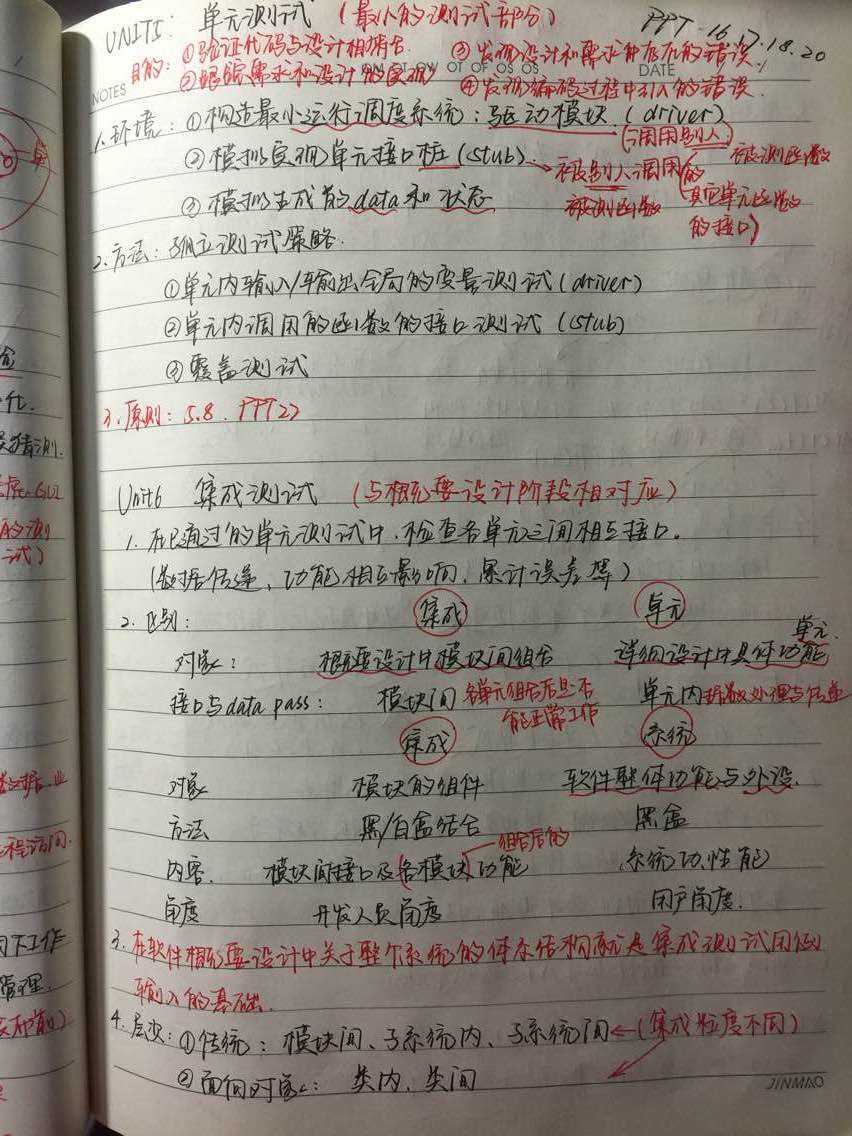 UNIT5: 单元测试 (最小的测试部分) PPT-16.17.18.20
目的: ①验证代码与设计相符合 ③发现设计和需求中存在的错误
②跟踪需求和设计的实现 ④发现编码过程中引入的错误.
NOTES DATE
1.环境: ①构造最小运行调度系统: 驱动模块 (driver)
(调用别人)
②模拟实现单元接口桩 (stub). → 被别人调用的 被测函数
③模拟生成的data和状态 被测函数 (其它单元函数
的接口)
2.方法: 孤立测试策略.
①单元内输入/输出全局的变量测试 (driver)
②单元内调用的函数的接口测试 (stub)
③覆盖测试
3.原则: 5.8. PPT27
Unit6 集成测试 (与概要设计阶段相对应)
1. 在已通过的单元测试中, 检查各单元之间相互接口。
(数据传递, 功能相互影响, 累计误差等)
2. 区别: 集成 单元
单元.
对象: 概要设计中模块间组合 详细设计中具体功能
接口与data pass: 模块间 各单元组合后是否 单元内数处理与传递
能正常工作
集成 系统
对象 模块的组件 软件整体功能与外设.
方法 黑/白盒结合 黑盒
组合后的
内容. 模块间接口及(各模块)功能 系统功、性能
角度 开发人员角度 用户角度.
3. 在软件概要设计中关于整个系统的体系结构就是集成测试用例
输入的基础.
4. 层次: ①传统: 模块间、子系统内、子系统间 ← (集成粒度不同)
②面向对象: 类内、类间
JINMAO